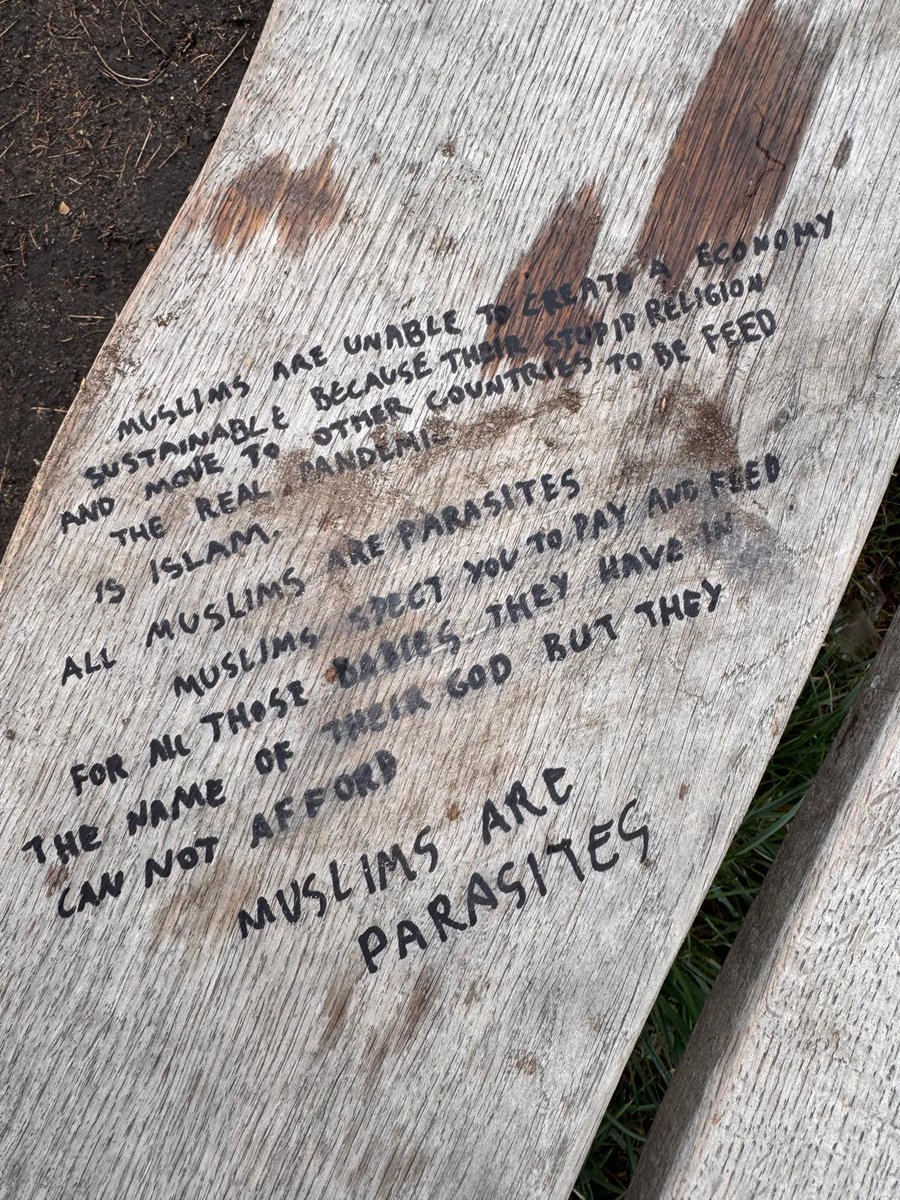 MUSLIMS ARE UNABLE TO CREATO A ECONOMY
SUSTAINABLE BECAUSE THEIR STUPID RELIGION
AND MOVE TO OTHER COUNTRIES TO BE FEED
THE REAL PANDEMIC
IS ISLAM.
ALL MUSLIMS ARE PARASITES
MUSLIMS SPECT YOU TO PAY AND FEED
FOR ALL THOSE BABIES THEY HAVE IN
THE NAME OF THEIR GOD BUT THEY
CAN NOT AFFORD
MUSLIMS ARE
PARASITES